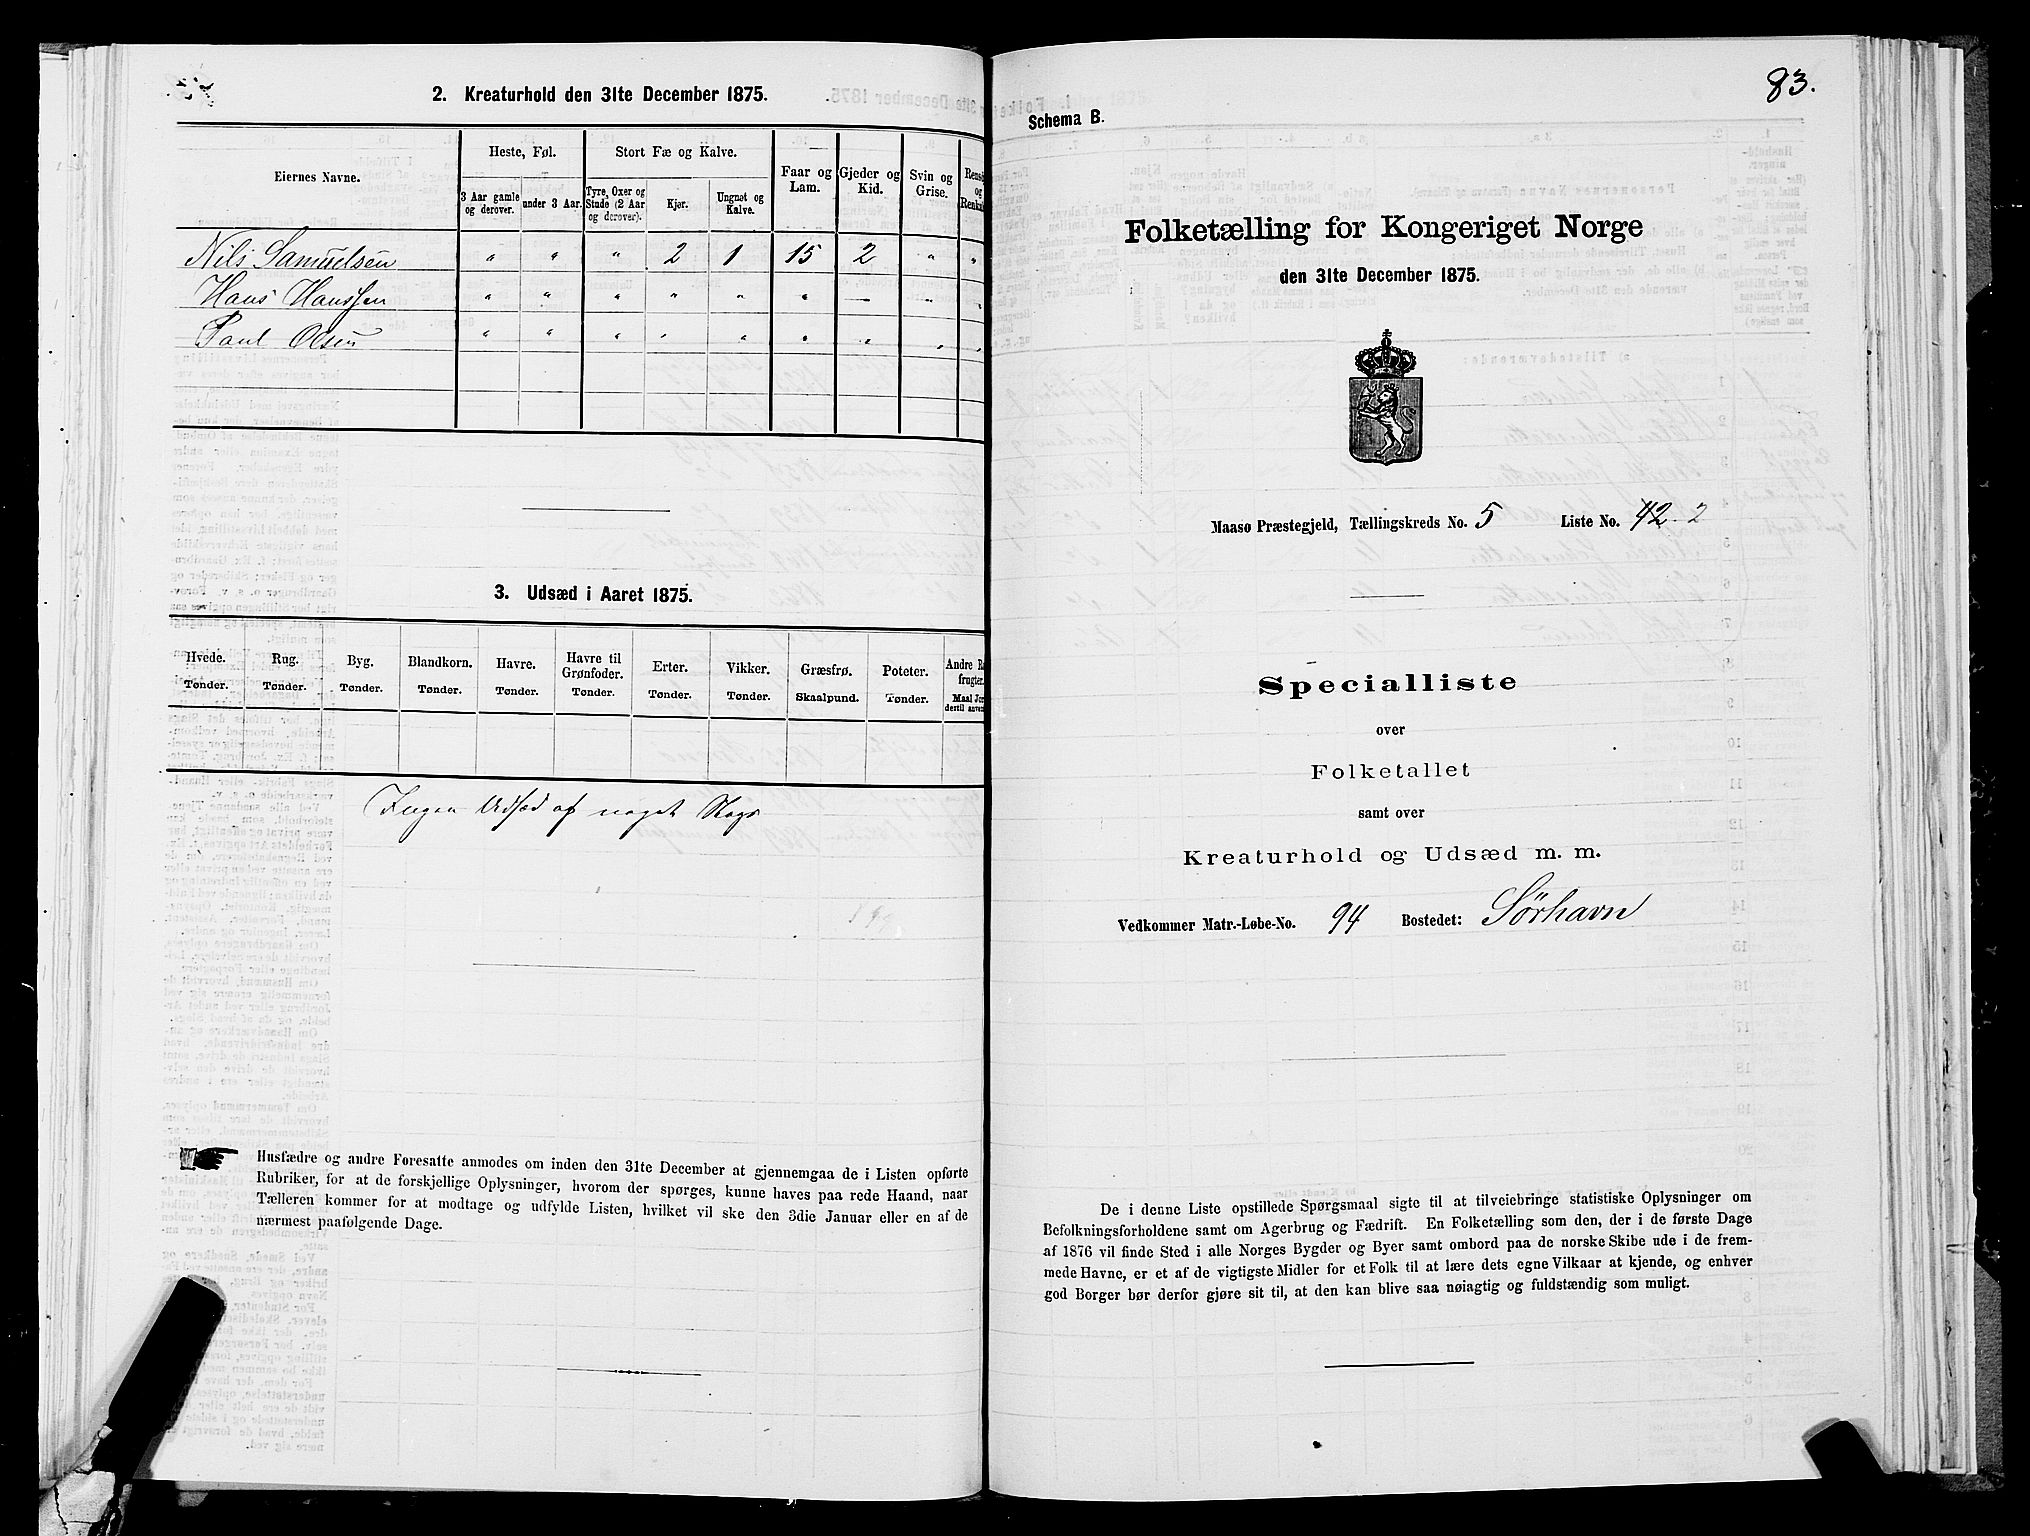 2. Kreaturhold den 31te December 1875.
Eiernes Navne.
Heste, Føl.
Stort Fæ og Kalve.
Faar og Lam.
Gjeder og Kid.
Svin og Grise.
3 Aar gamle og derover.
under 3 Aar.
Tyre, Oxer og Stude (2 Aar og derover).
Kjør.
Ungnøt og Kalve.
Nils Samuelsen " " " 2 1 15 2 " "
Hans Hanssen " " " " " " — " "
Paul Olsen " " " " " " " " "
3. Udsæd i Aaret 1875.
Hvede. Tønder.
Rug. Tønder.
Byg. Tønder.
Blandkorn. Tønder.
Havre. Tønder.
Havre til Grønfoder. Tønder.
Erter. Tønder.
Vikker. Tønder.
Græsfrø. Skaalpund.
Poteter. Tønder.
Ingen Udsæd af noget Slags
Husfædre og andre Foresatte anmodes om inden den 31te December at gjennemgaa de i Listen opførte
Rubriker, for at de forskjellige Oplysninger, hvorom der spørges, kunne haves paa rede Haand, naar
Tælleren kommer for at modtage og udfylde Listen, hvilket vil ske den 3die Januar eller en af de
nærmest paafølgende Dage.
83.
Schema B.
Folketælling for Kongeriget Norge
den 31te December 1875.
Maasø Præstegjeld, Tællingskreds No. 5 Liste No. 42 2
Specialliste
over
Folketallet
samt over
Kreaturhold og Udsæd m. m.
Vedkommer Matr.-Løbe-No. 94 Bostedet: Sørhavn
De i denne Liste opstillede Spørgsmaal sigte til at tilveiebringe statistiske Oplysninger om
Befolkningsforholdene samt om Agerbrug og Fædrift. En Folketælling som den, der i de første Dage
af 1876 vil finde Sted i alle Norges Bygder og Byer samt ombord paa de norske Skibe ude i de frem-
mede Havne, er et af de vigtigste Midler for et Folk til at lære dets egne Vilkaar at kjende, og enhver
god Borger bør derfor gjøre sit til, at den kan blive saa nøiagtig og fuldstændig som muligt.